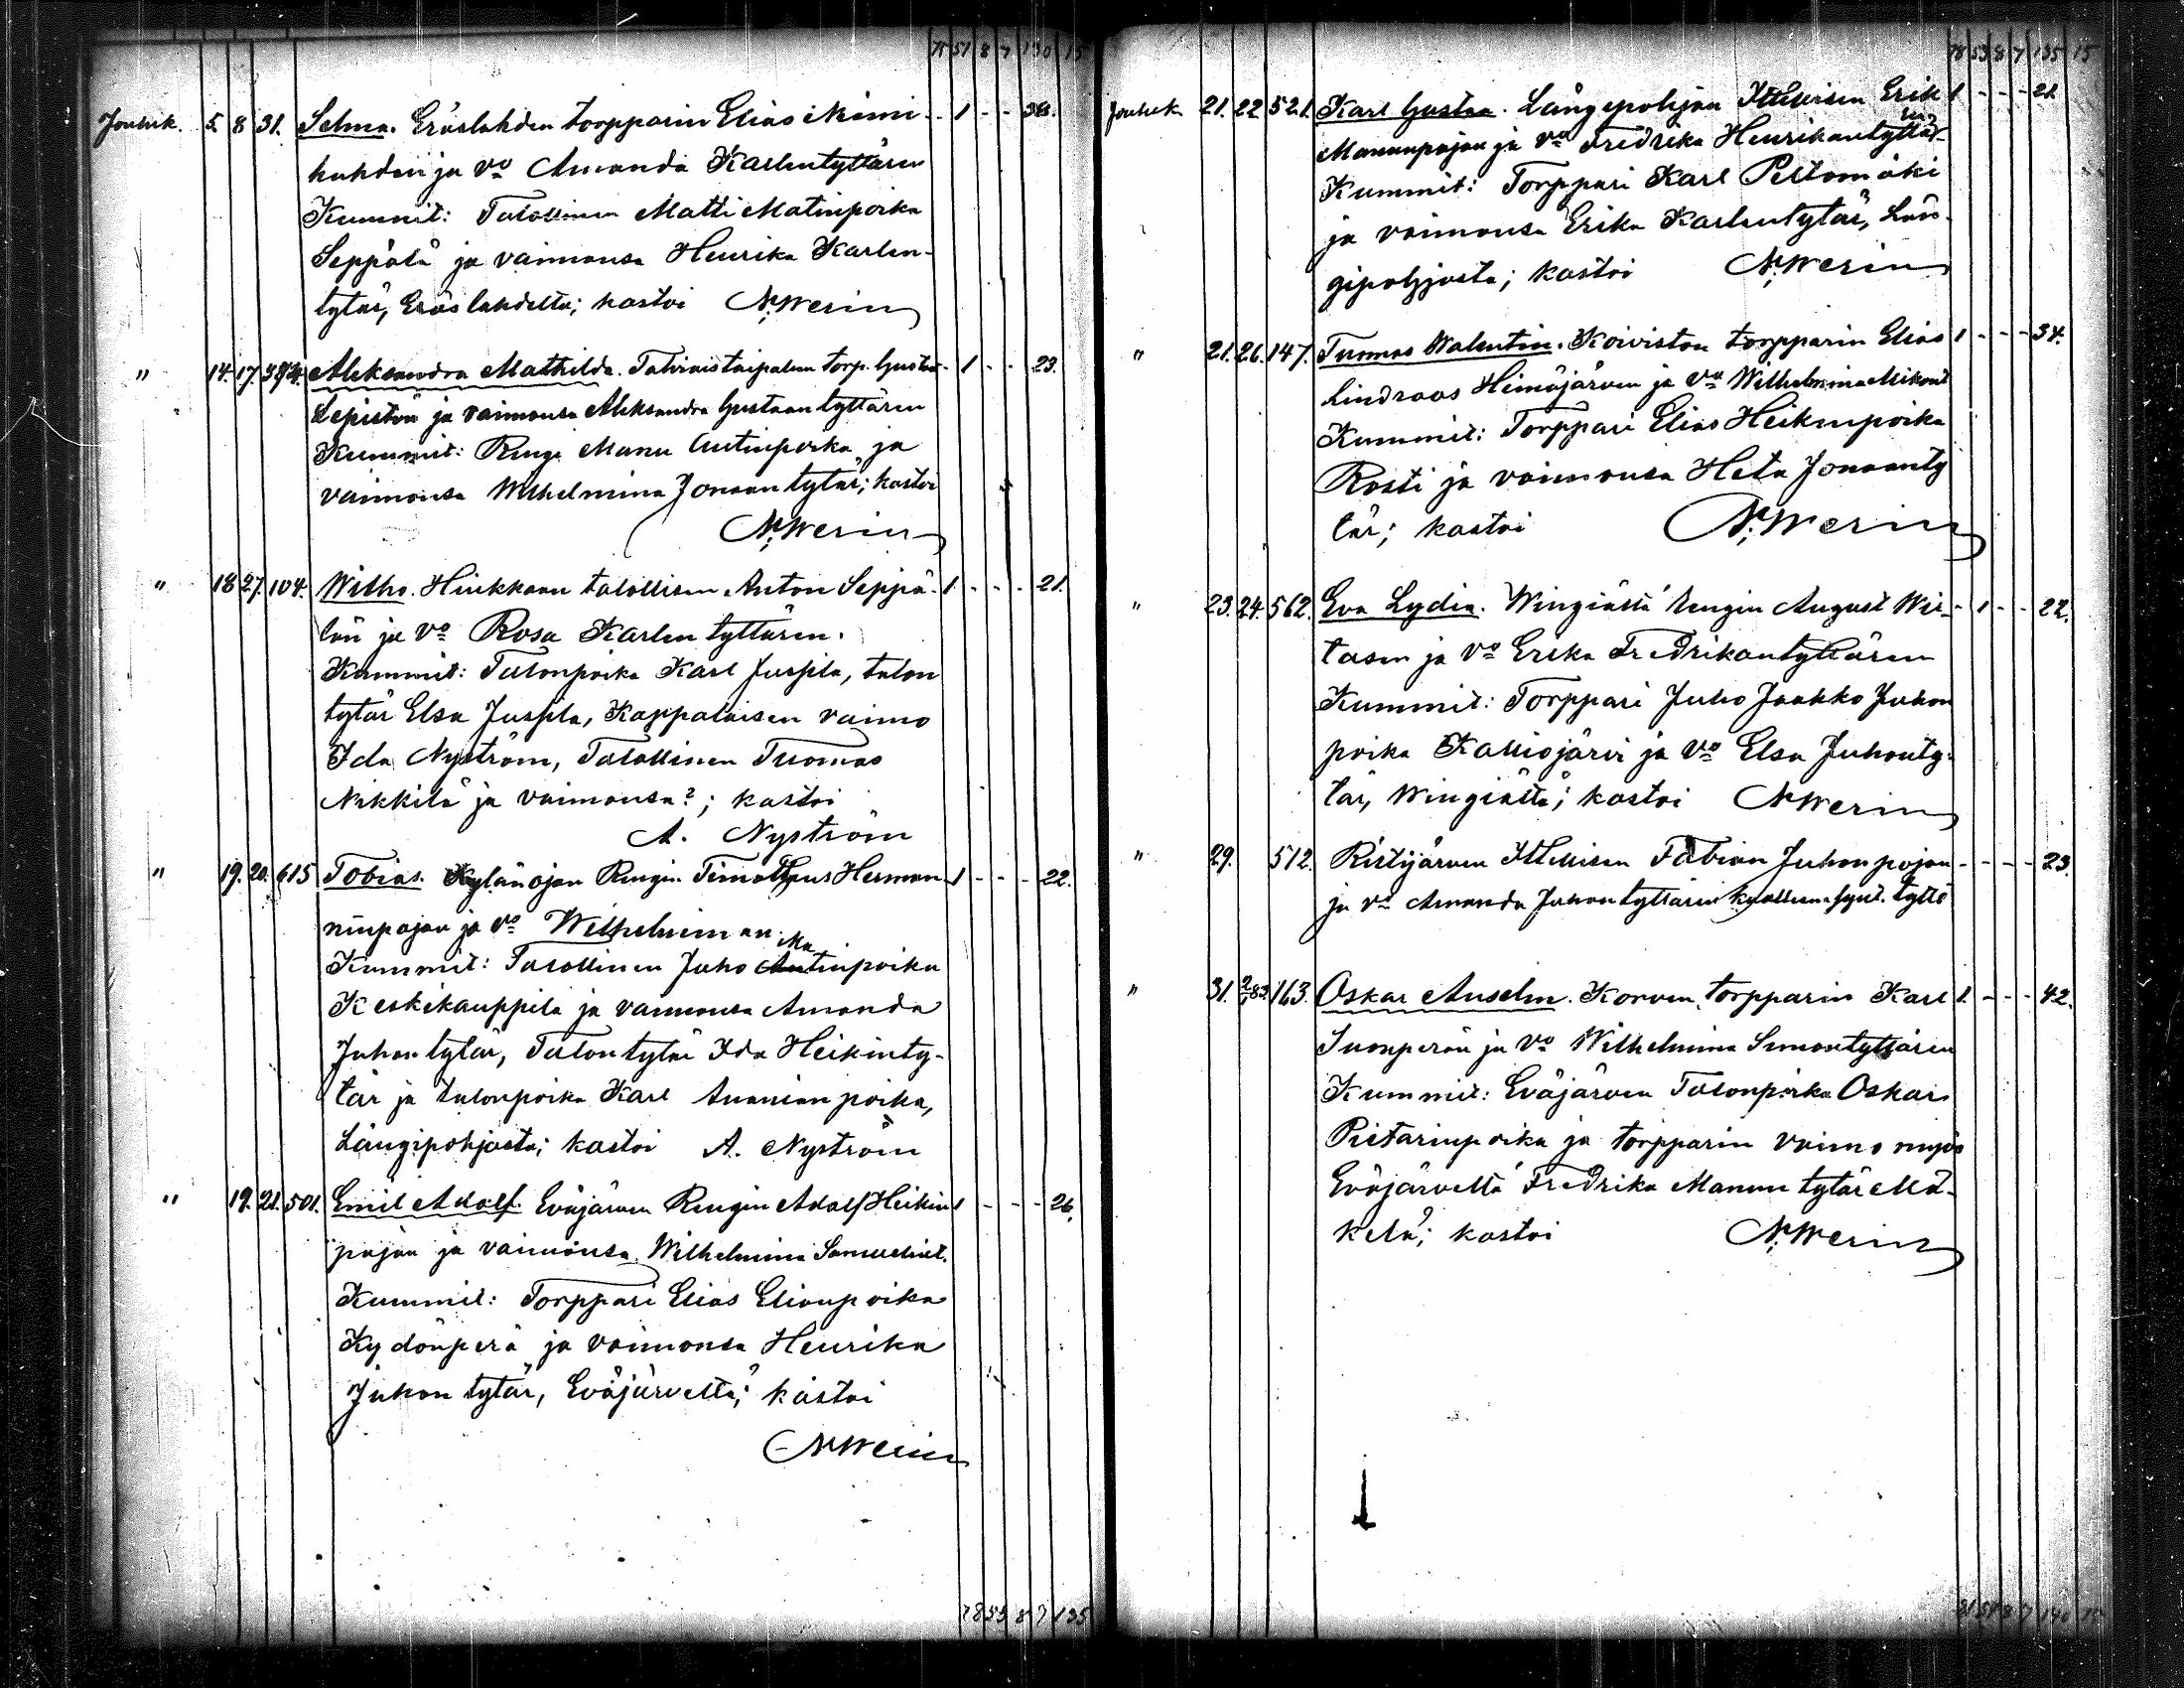 75 51 8 7 130 15
Jouluk. 5. 8 31. Selma. Eräslahden torpparin Elias Niemi- - 1 - - 38.
kahden ja vo Amanda Kaarlentyttären
Kummit: Talollinen Matti Matinpoika
Seppälä ja vaimonsa Henrika Karlen-
tytär, Eräslahdelta; kastoi N. Werin
" 14. 17. Aleksandra Mathilda. Talviaistaipaleen torp. Gustaa- - 1 - - 23.
Lepistön ja vaimonsa Aleksandra Gustaantyttären
Kummit: Rengi Manu Antinpoika ja
vaimonsa Wilhelmina Jonaantytär; kastoi
N. Werin
" 18 27. 104. Wilho. Hinkkaan talollisen Anton Seppä- 1. - - - 21.
län ja vo Rosa Karlentyttären.
Kummit: Talonpoika Karl Juspila, talon
tytär Elsa Juspila, Kappalaisen vaimo
Ida Nyström, Talollinen Tuomas
Nikkilä ja vaimonsa?; kastoi
A. Nyström
" 19. 20. 615 Tobias. Kylänojan Rengin Timotheus Herman- 1 - - - 22.
ninpojan ja vo Wilhelmiinan.
Kummit: Talollinen Juho Matinpoika
Keskikauppila ja vaimonsa Amanda
Juhontytär, Talontytär Ida Heikinty-
tär ja talonpoika Karl Ananianpoika,
Längipohjasta; kastoi A. Nyström
" 19. 21. 501. Emil Adolf. Eväjärven Rengin Adolf Heikin 1 - - - 26.
pojan ja vaimonsa Wilhelmina Samuelint.
Kummit: Torppari Elias Elianpoika
Kydönperä ja vaimonsa Henrika
Juhontytär, Eväjärveltä; kastoi
N. Werin
78 53 8 7 135
78 53 8 7 135 15
Jouluk. 21. 22 521. Karl Gustaa. Längepohjan Itsellisen Erik 1 - - - 21.
Manunpojan ja vo Fredrika Henrikantyttären
Kummit: Torppari Karl Peltomäki
ja vaimonsa Erika Karlentytär, Län-
gipohjasta; kastoi N. Werin
" 21. 26. 147. Tuomas Walentin. Koiviston torpparin Elias 1 - - - 34.
Lindroos Heinäjärven ja vo Wilhelmina Mikont
Kummit: Torppari Elias Heikinpoika
Rosti ja vaimonsa Heta Jonaanty
tär; kastoi N. Werin
" 23. 24. 562. Eva Lydia. Wingiältä rengin August Wir- - 1 - - 22.
tasen ja vo Erika Fredrikantyttären
Kummit: Torppari Juho Jaakko Juhon
poika Kalliojärvi ja vo Elsa Juhonty-
tär, Wingiältä; kastoi N. Werin
" 29. 512. Ristijärven Itsellisen Fabian Juhonpojan - - - - 23.
ja vo Amanda Juhontyttären kuolleena synt. tyttö
" 31. 2/1 83. 163. Oskar Anselm. Korven torpparin Karl 1. - - - 42.
Suonperän ja vo Wilhelmina Simontyttären
Kummit: Eväjärven Talonpoika Oskar
Pietarinpoika ja torpparin vaimo myös
Eväjärveltä Fredrika Manuntytär Mä-
kelä; kastoi N. Werin
81 54 8 7 140